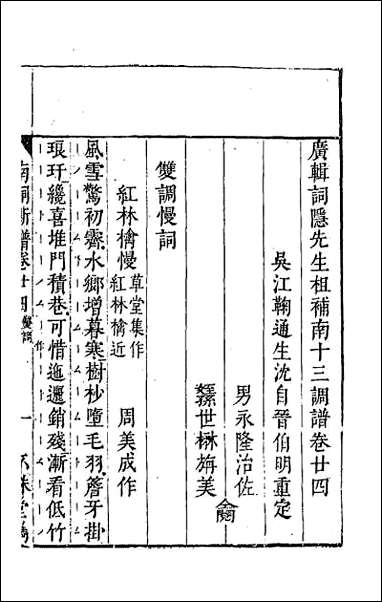 廣輯詞隱先生增補南十三調譜卷廿四
吳江鞠通生沈自晉伯明重定
男永隆治佐
姪世楙旃美
仝閱
雙調慢詞
紅林檎慢 草堂集作紅林檎近 周美成作
風雪驚初霽水鄉增暮寒樹杪墮毛羽簷牙掛
琅玕纔喜堆門積巷可惜迤邐銷殘漸看低竹
南詞新譜卷廿四 雙調 一 不殊堂